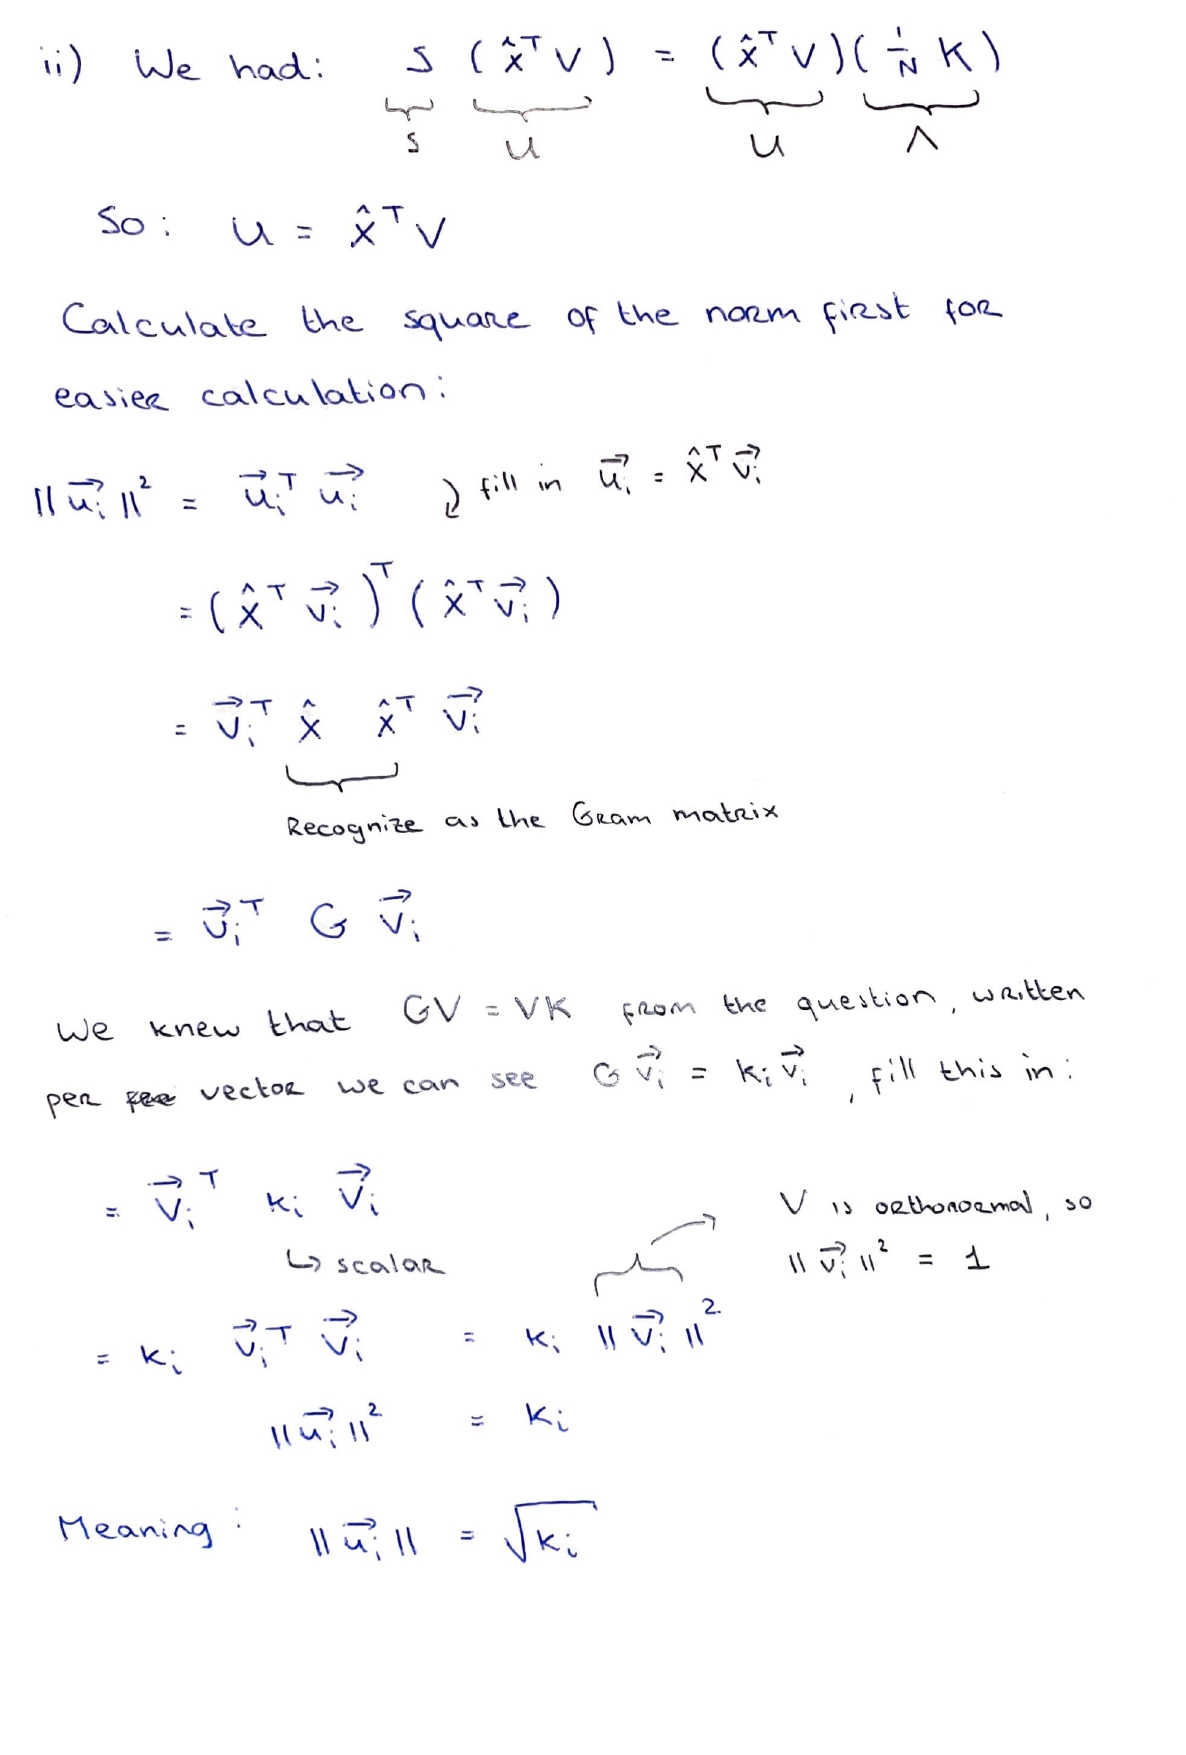 ii) We had: S (x̂ᵀV) = (x̂ᵀV)(1/N K)
S U U Λ
So: U = x̂ᵀV
Calculate the square of the norm first for
easier calculation:
||u⃗ᵢ||² = u⃗ᵢᵀ u⃗ᵢ fill in u⃗ᵢ = x̂ᵀv⃗ᵢ
= (x̂ᵀ v⃗ᵢ)ᵀ (x̂ᵀv⃗ᵢ)
= v⃗ᵢᵀ x̂ x̂ᵀ v⃗ᵢ
Recognize as the Gram matrix
= v⃗ᵢᵀ G v⃗ᵢ
We knew that GV = VK from the question, written
per vector we can see G v⃗ᵢ = kᵢ v⃗ᵢ, fill this in:
= v⃗ᵢᵀ kᵢ v⃗ᵢ
↳ scalar
V is orthonormal, so
||v⃗ᵢ||² = 1
= kᵢ v⃗ᵢᵀ v⃗ᵢ = kᵢ ||v⃗ᵢ||²
||u⃗ᵢ||² = kᵢ
Meaning: ||u⃗ᵢ|| = √kᵢ